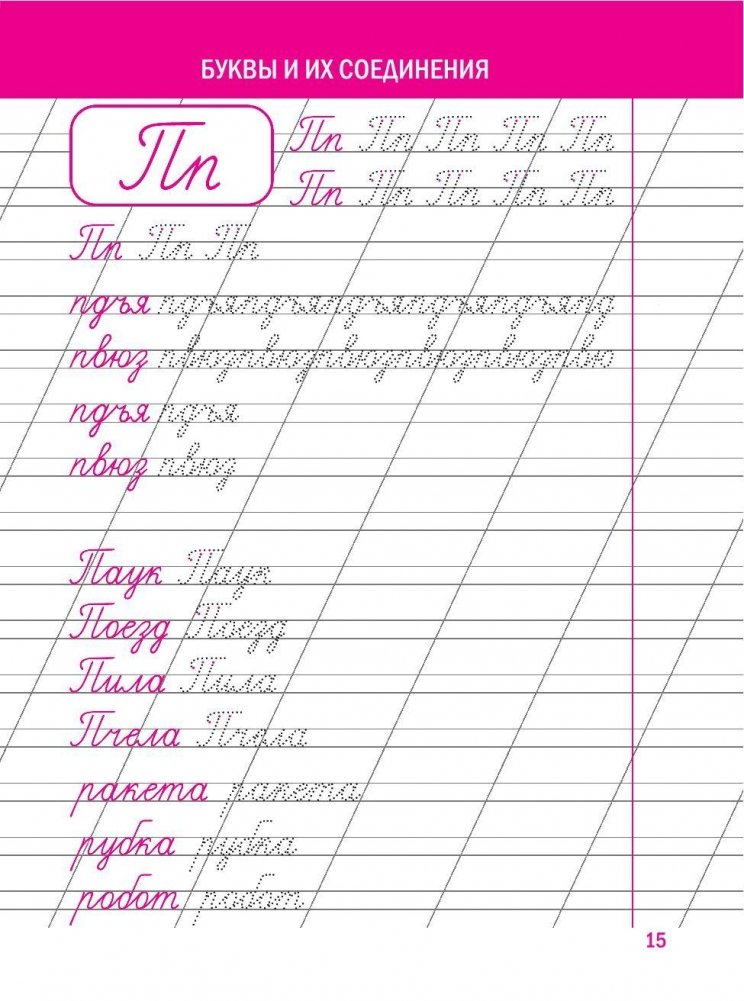 БУКВЫ И ИХ СОЕДИНЕНИЯ
Пп
Пп Пп Пп Пп Пп
Пп Пп Пп Пп Пп
Пп Пп Пп
пдъя пдъяпдъяпдъяпдъяпдъяпд
пвюз пвюзпвюзпвюзпвюзпвюзпвю
пдъя пдъя
пвюз пвюз
Паук Паук
Поезд Поезд
Пила Пила
Пчела Пчела
ракета ракета
рубка рубка
робот робот
15